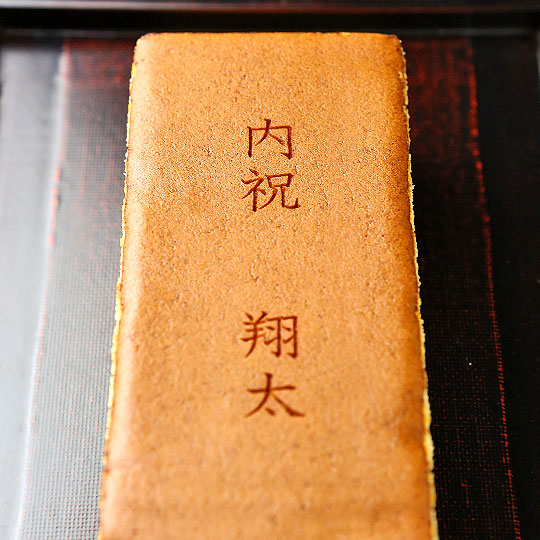 内祝
翔太